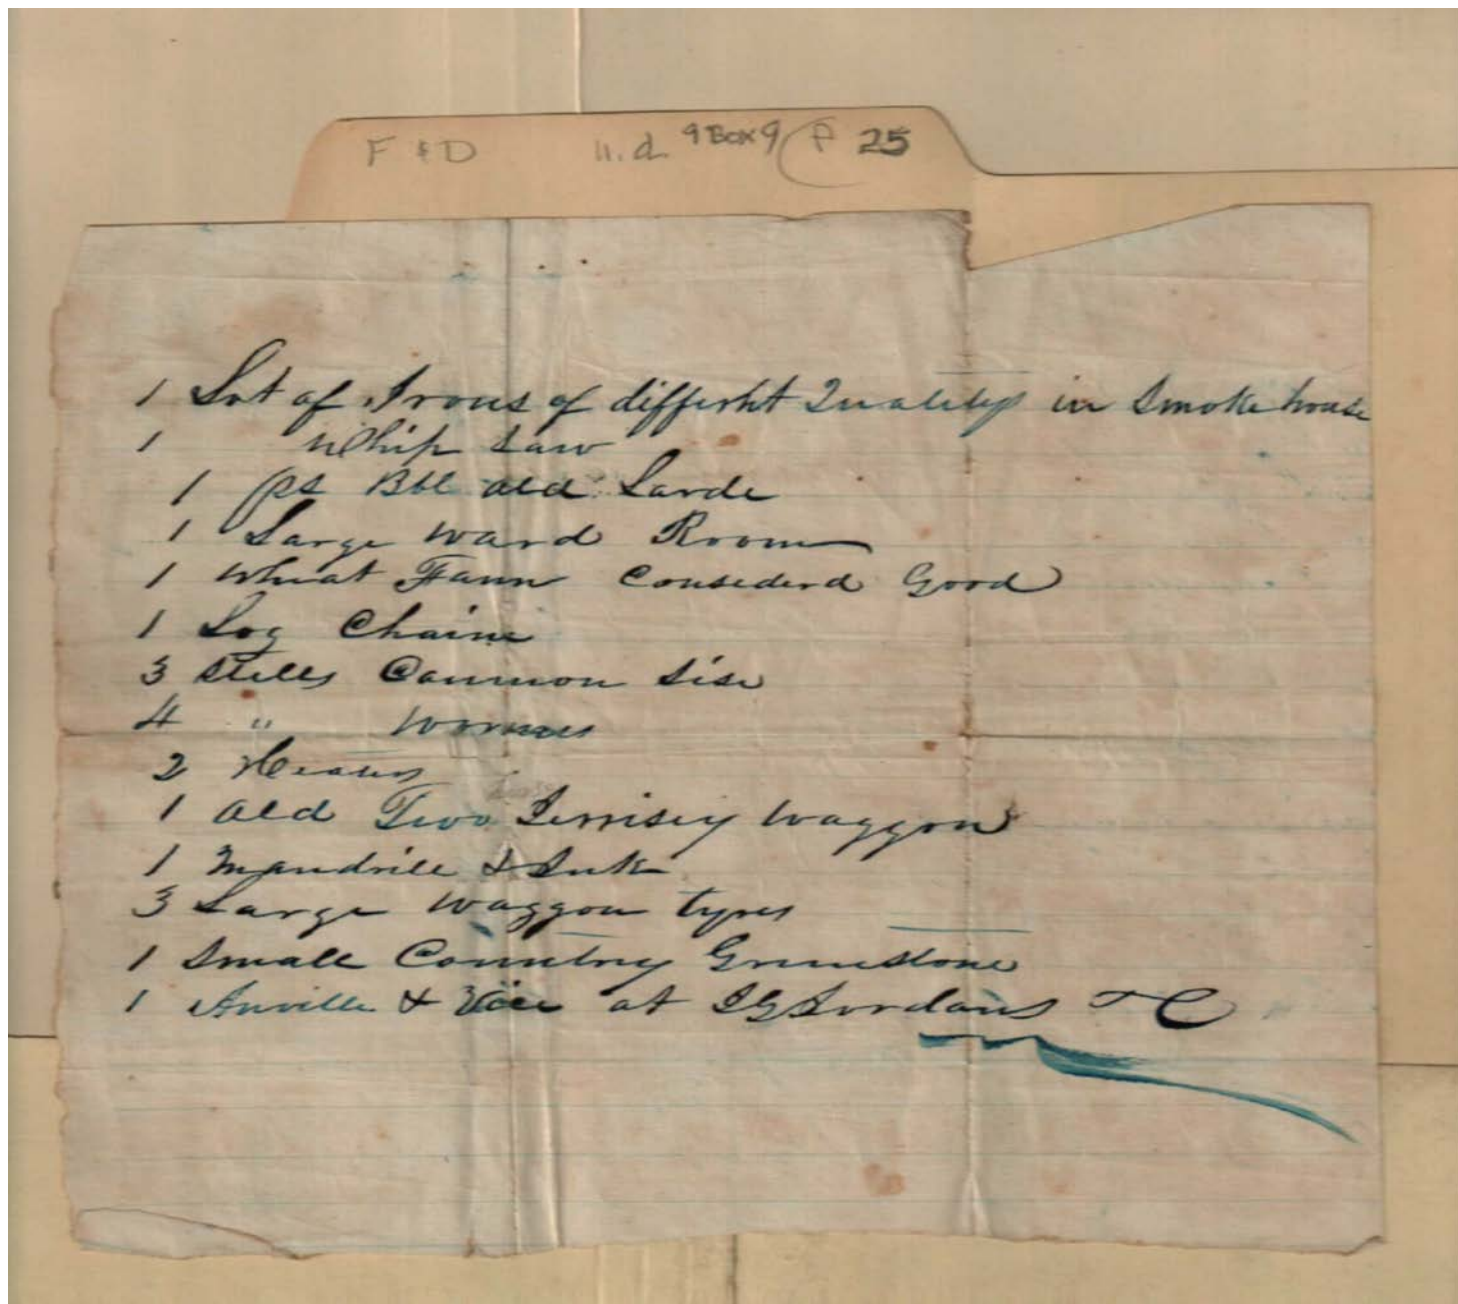 F & D n.d. 9 Box 9 F 25
1 Lot of Irons of differht Quality in Smoke house
1 Whip Saw
1 ps Bbl old Larde
1 Large ward Room
1 Wheat Fann Consederd Good
1 Log Chaine
3 Stills Common Sise
4 " Wormes
2
1 old Two Waggon
1 Mandrill &
3 Large Waggon tyres
1 Small Country Grinstone
1 Anville & Vice at Jordans